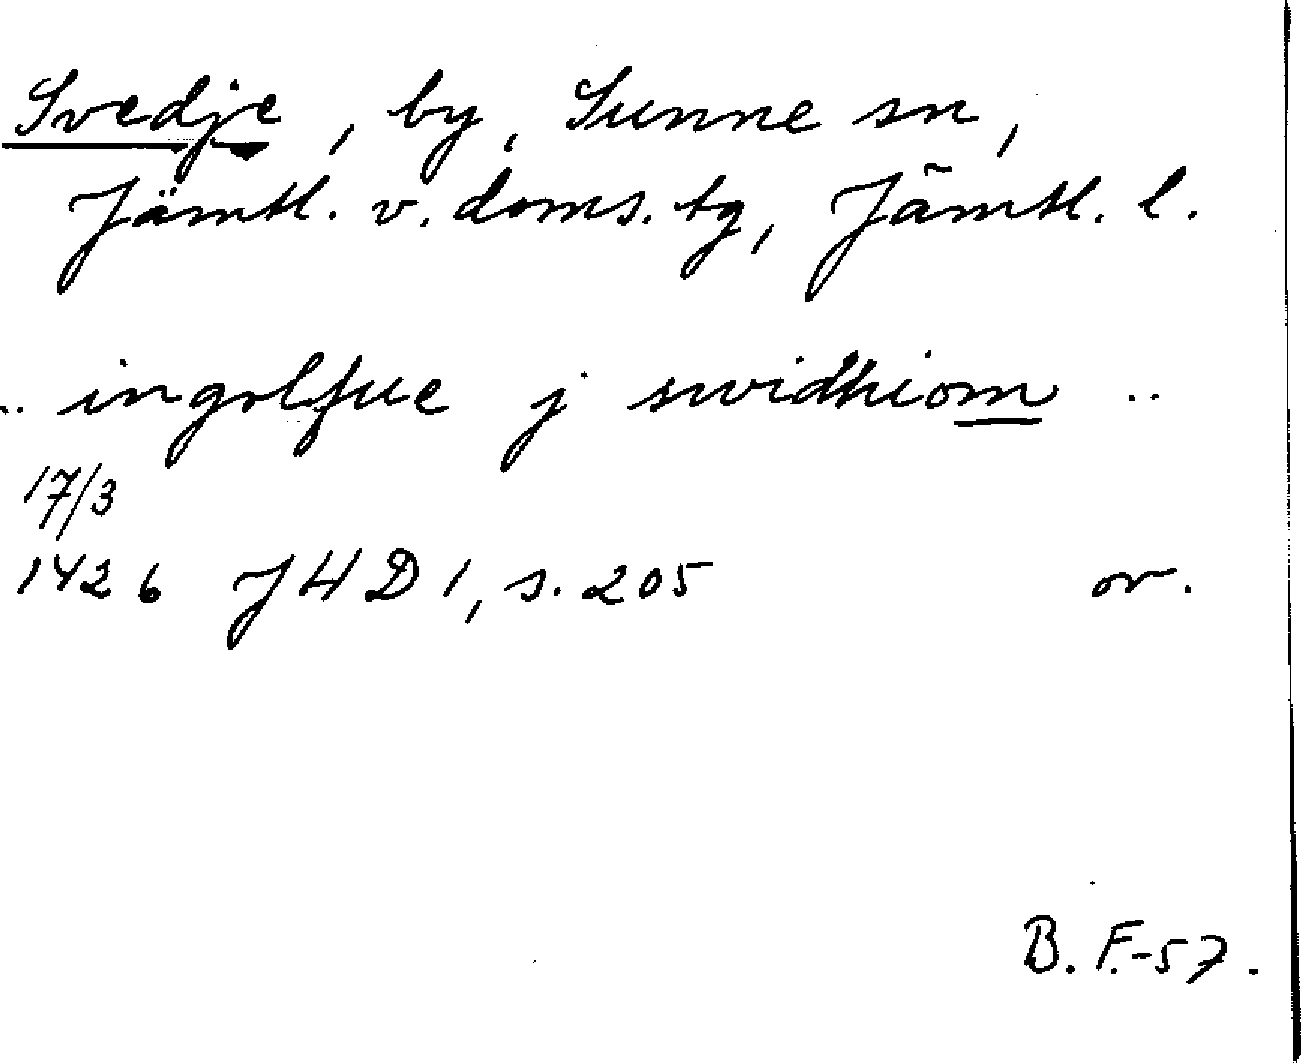 Svedje, by, Sunne sn,
Jämtl. v. doms. tg, Jämtl. l.
.. ingolfue j swidhiom ..
17/3
1426 JHD 1, s. 205 or.
B. F.-57.